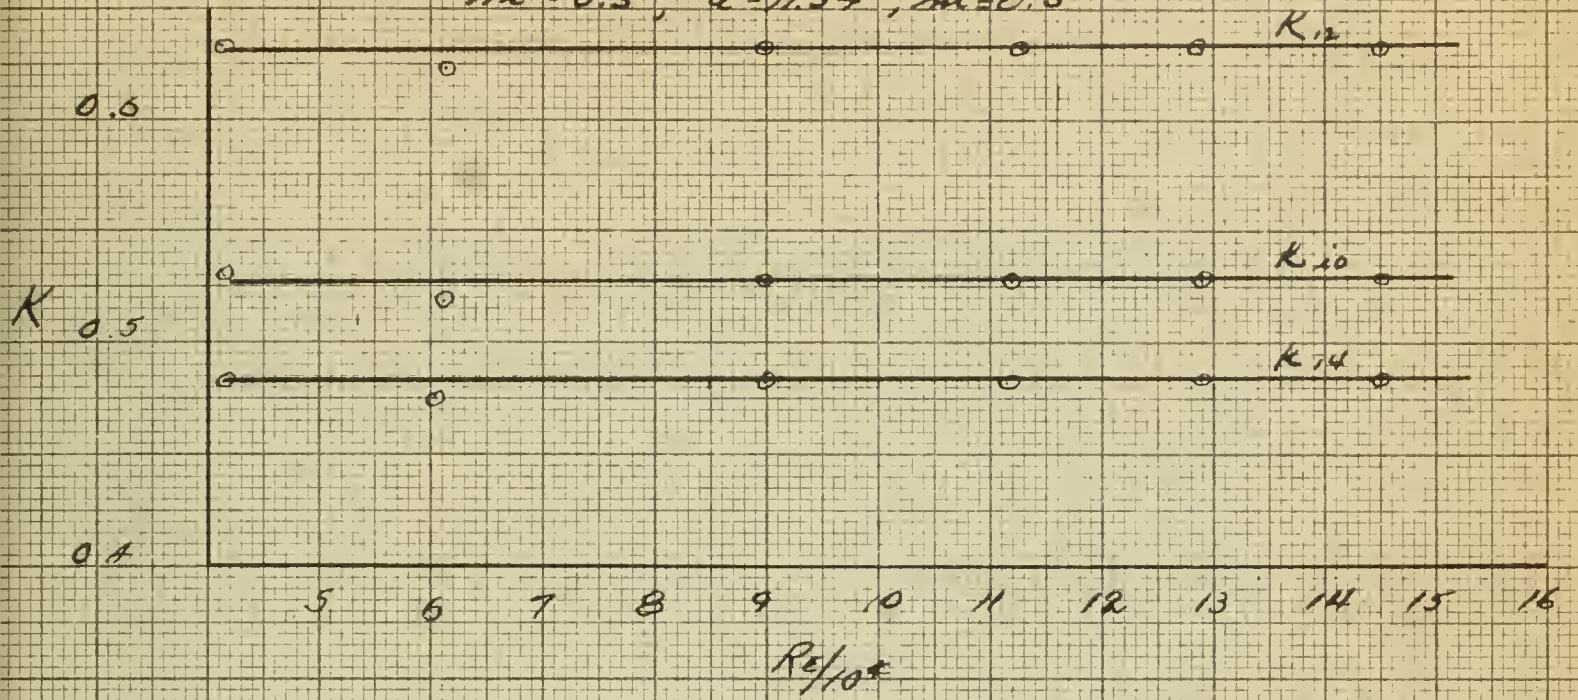 K12
0.6
K10
K 0.5
K14
0.4
5 6 7 8 9 10 11 12 13 14 15 16
RE/10⁴